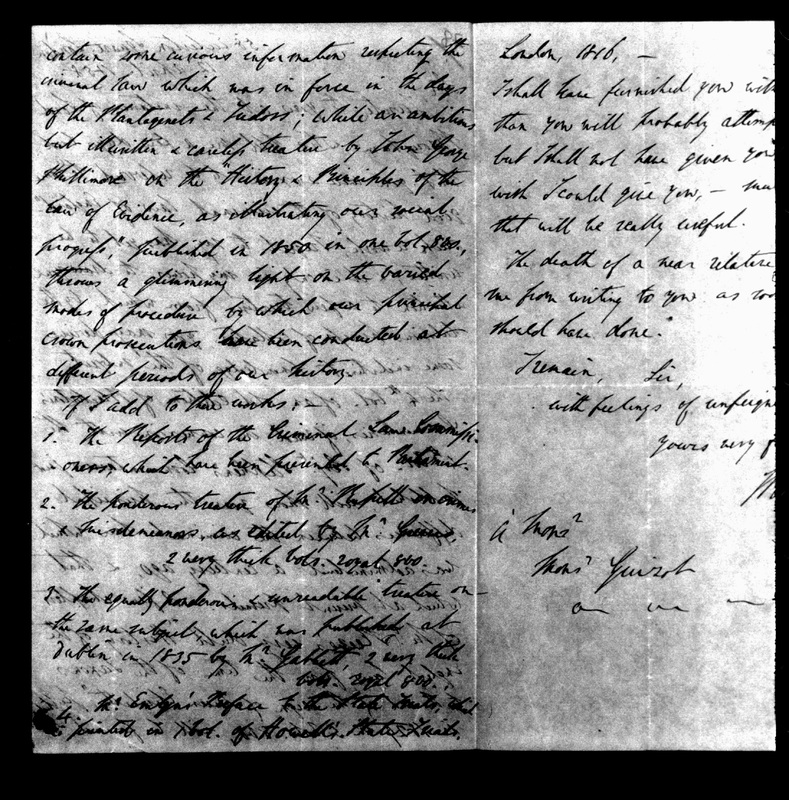 contain some curious information respecting the
criminal law which was in force in the days
of the Plantagenets & Tudors; while an ambitious
but illwritten & careless treatise by John George
Phillimore on the "History & Principles of the
Law of Evidence, as illustrating our social
progress," published in 1850 in one vol. 8vo.,
throws a glimmering light on the varied
modes of procedure by which our principal
crown prosecutions have been conducted at
different periods of our history.
If I add to these works:—
1. The Reports of the Criminal Law Commissi-
oners, which have been presented to Parliament.
2. The ponderous treatise of Mr. Russell on crimes
& misdemeanors, as edited by Mr. Greaves,
2 very thick vols. royal 8vo.
3. The equally ponderous & unreadable treatise on
the same subject, which was published at
Dublin in 1835 by Mr. Gabbett, 2 very thick
vols. royal 8vo.
4. Mr. Emlyn's Preface to the State Trials,
printed in 1 vol. of Howell's State Trials,
London, 1816, —
I shall have furnished you with
than you will probably
but I shall not have given you
wish I could give you, —
that will be really useful.
The death of a near relative
me from writing to you as
should have done.
I remain, Sir,
with feelings of
yours very
à Monsr
Monsr Guizot